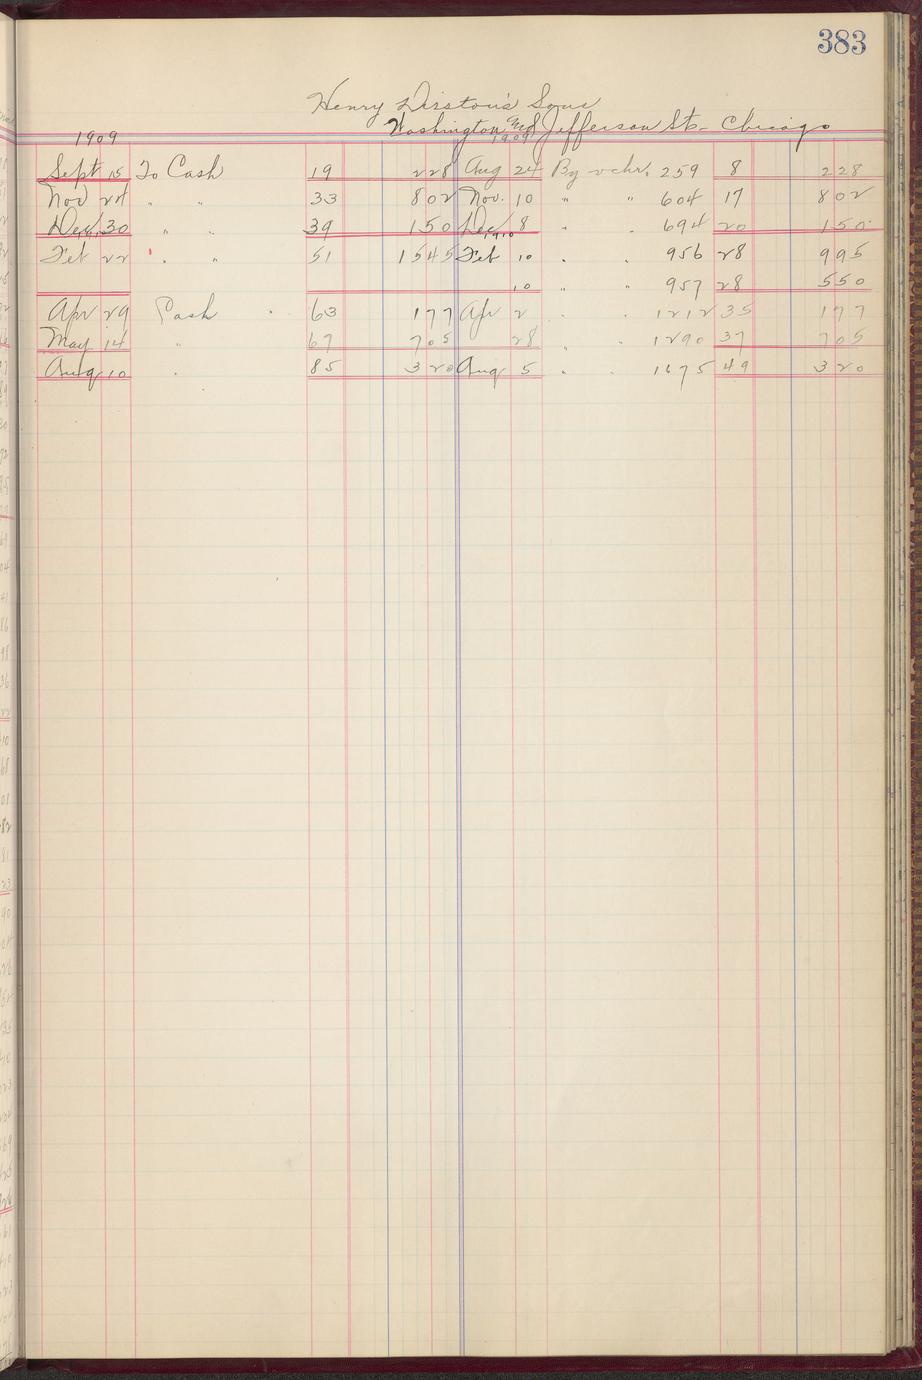 383
Henry Disston's Sons
Washington and Jefferson Sts- Chicago
1909 1909
Sept 15 To Cash 19 228 Aug 24 By vchr. 259 8 228
Nov 24 " " 33 802 Nov. 10 " " 604 17 802
Dec 30 " " 39 150 Dec 8 " " 694 20 150
1910 1910
Feb 22 " " 51 1545 Feb 10 " " 956 28 995
10 " " 957 28 550
Apr 29 Cash 63 177 Apr 2 " " 1212 35 177
May 14 " 67 705 28 " " 1290 37 705
Aug 10 " 85 320 Aug 5 " " 1675 49 320